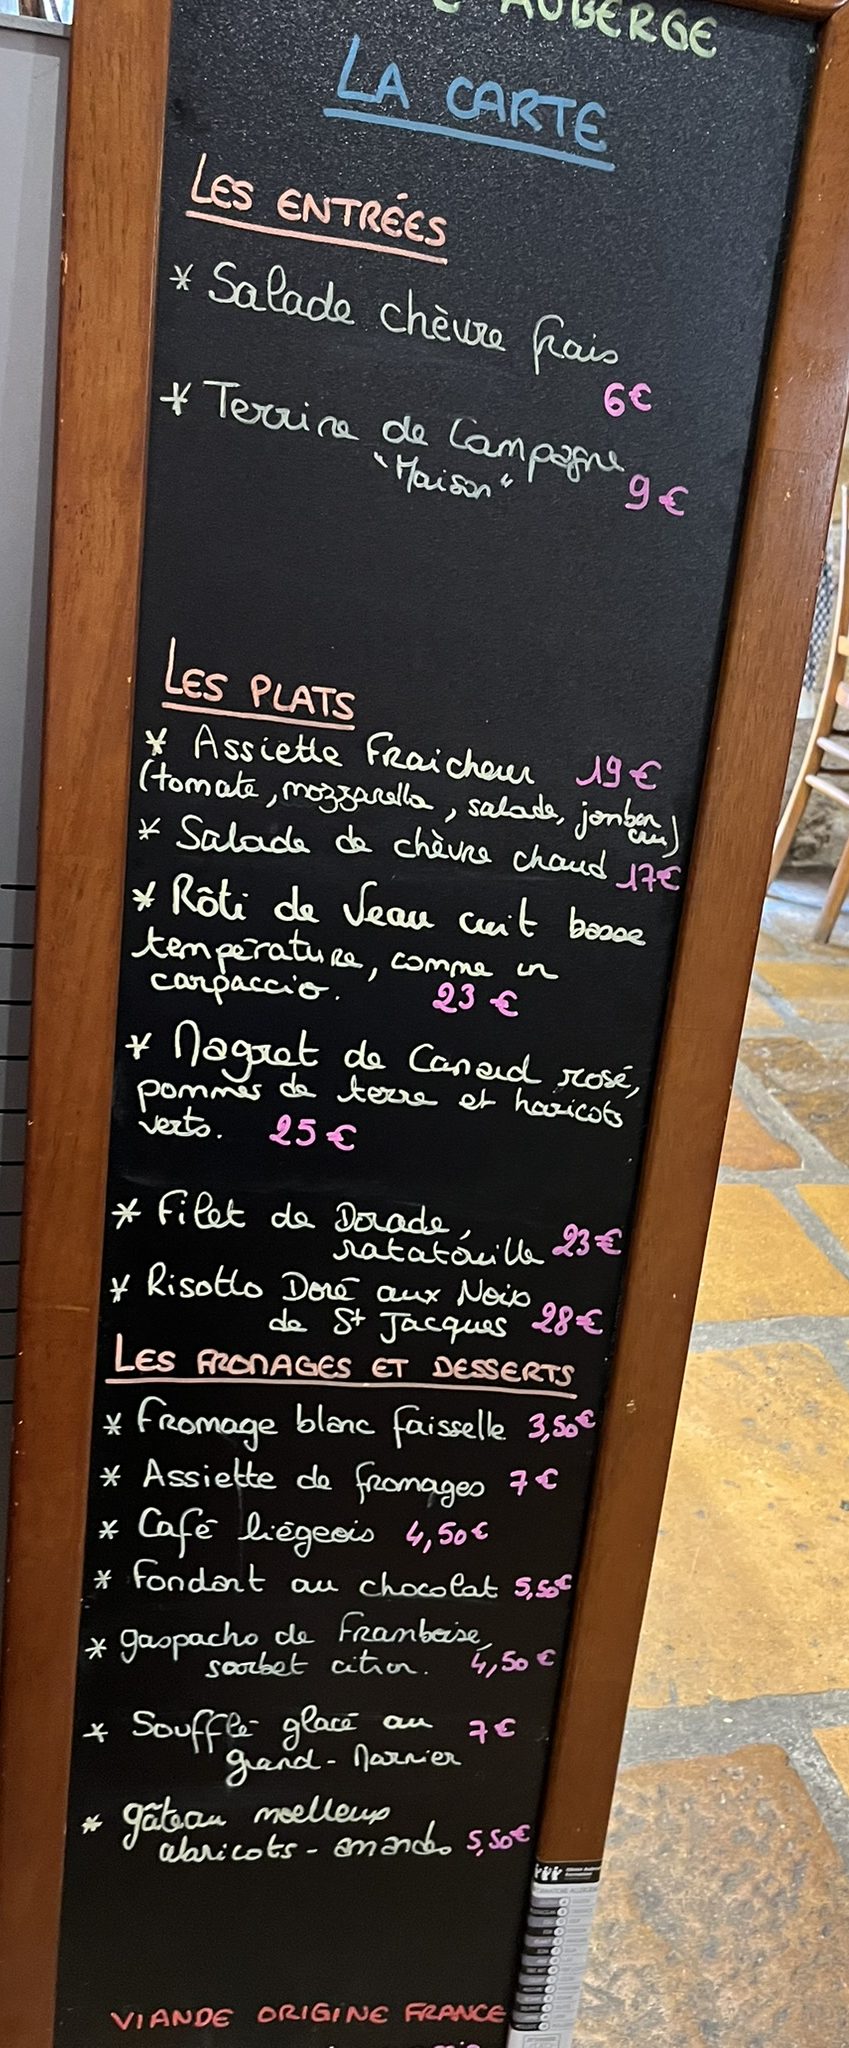 AUBERGE
LA CARTE
LES ENTRÉES
* Salade chèvre frais
6€
* Terrine de Campagne
"Maison" 9€
LES PLATS
* Assiette Fraicheur 19€
(tomate, mozzarella, salade, jambon
cru)
* Salade de chèvre chaud 17€
* Rôti de Veau cuit basse
température, comme un
carpaccio. 23€
* Magret de Canard rosé,
pommes de terre et haricots
verts. 25€
* Filet de Dorade,
ratatouille 23€
* Risotto Doré aux Noix
de St Jacques 28€
LES FROMAGES ET DESSERTS
* Fromage blanc faisselle 3,50€
* Assiette de fromages 7€
* Café liégeois 4,50€
* Fondant au chocolat 5,50€
* gaspacho de Framboise,
sorbet citron. 4,50€
* Soufflé glacé au 7€
grand-Marnier
* gâteau moelleux
abricots-amandes 5,50€
VIANDE ORIGINE FRANCE